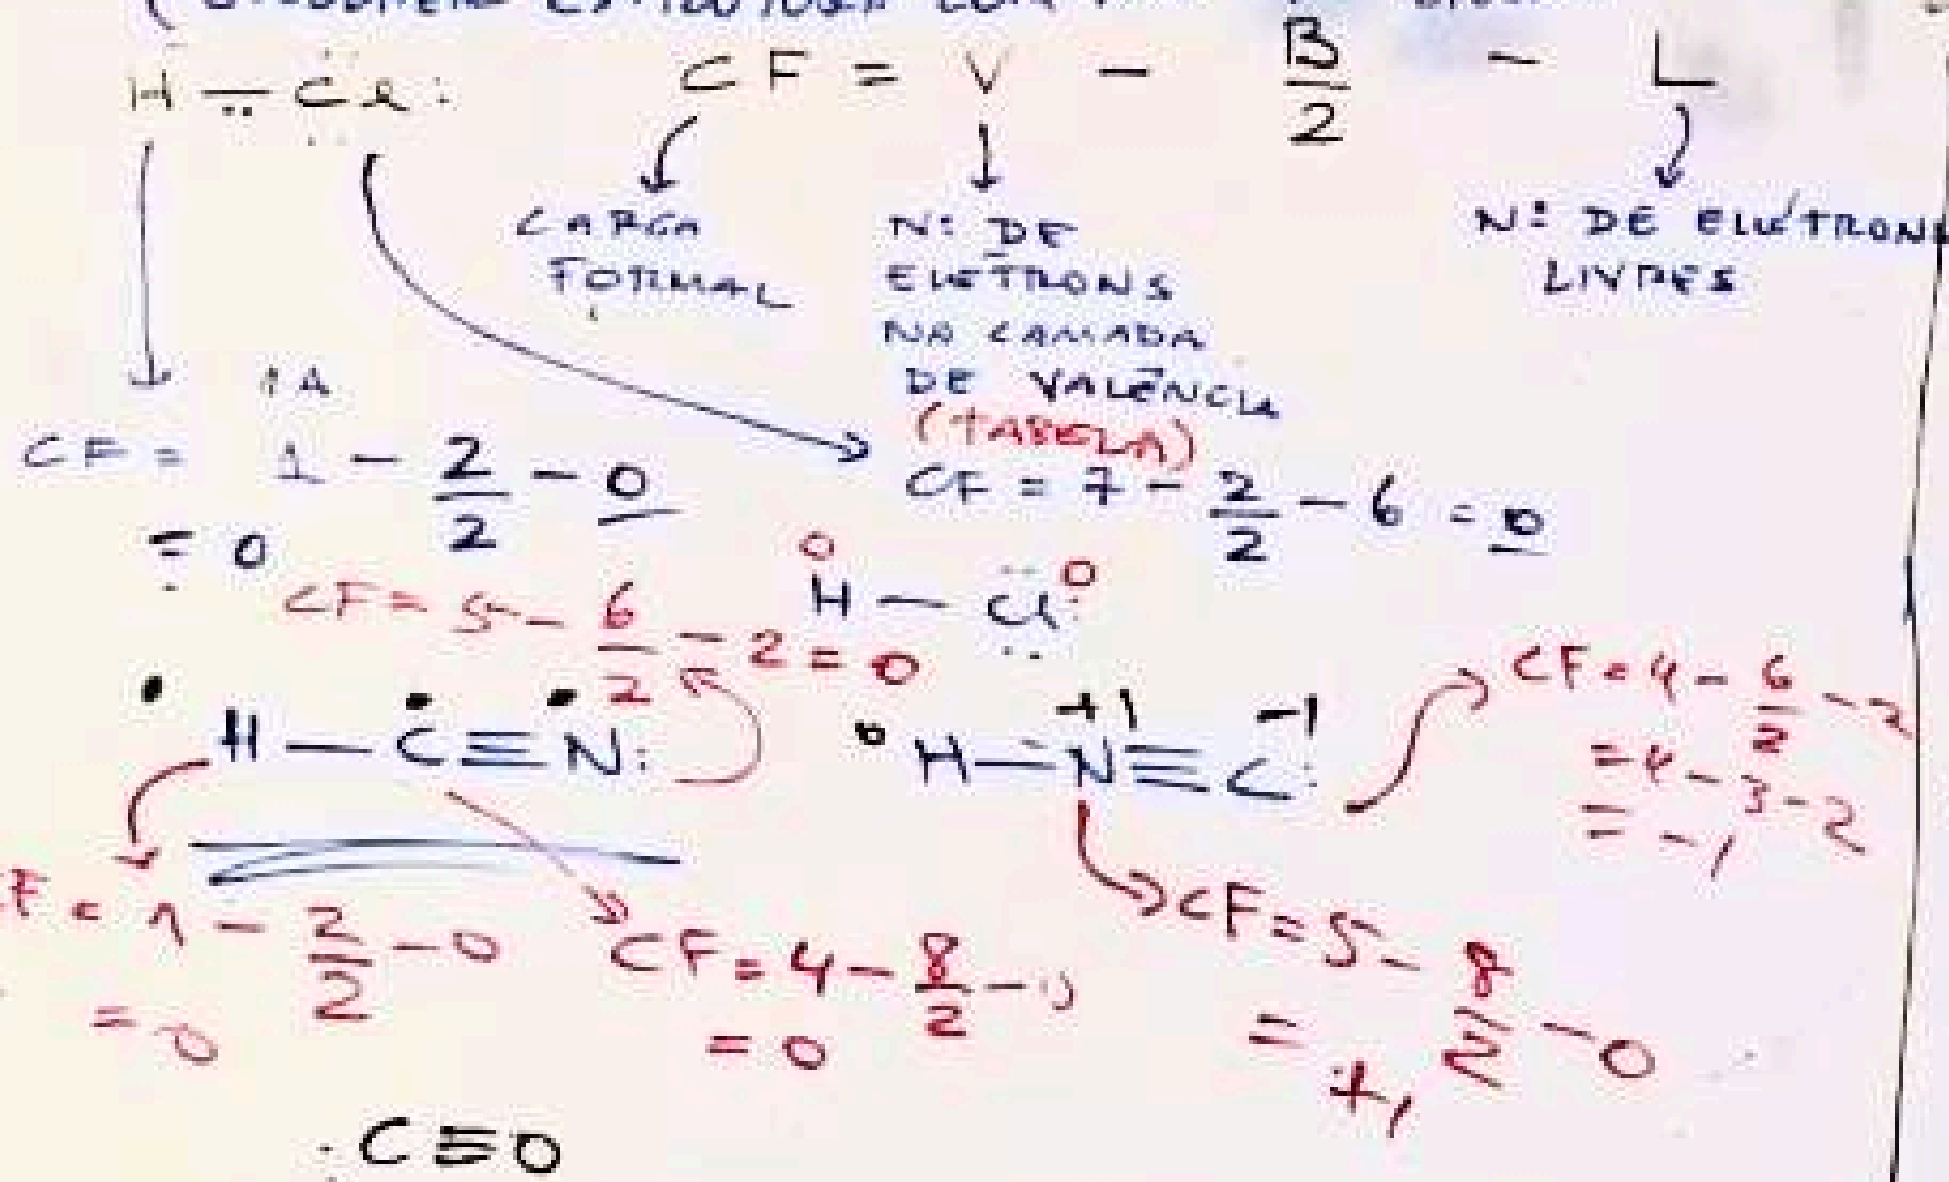 H — Cl :
CF = V - B/2 - L
CARGA FORMAL
Nº DE ELÉTRONS NA CAMADA DE VALÊNCIA (TABELA)
Nº DE ELÉTRON
LIVRES
1A
CF = 1 - 2/2 - 0
= 0
CF = 7 - 2/2 - 6 = 0
0 0
H — Cl:
CF = 5 - 6/2 - 2 = 0
H — C ≡ N:
+1 -1
H — N ≡ C:
CF = 4 - 6/2 - 2
= 4 - 3 - 2
= -1
F = 1 - 2/2 - 0
= 0
CF = 4 - 8/2 - 0
= 0
CF = 5 - 8/2 - 0
= +1
:C≡O